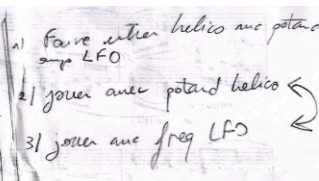 1) Faire entrer helico avec potard
amp LFO
2) jouer avec potard helico
3) jouer avc freq LFO